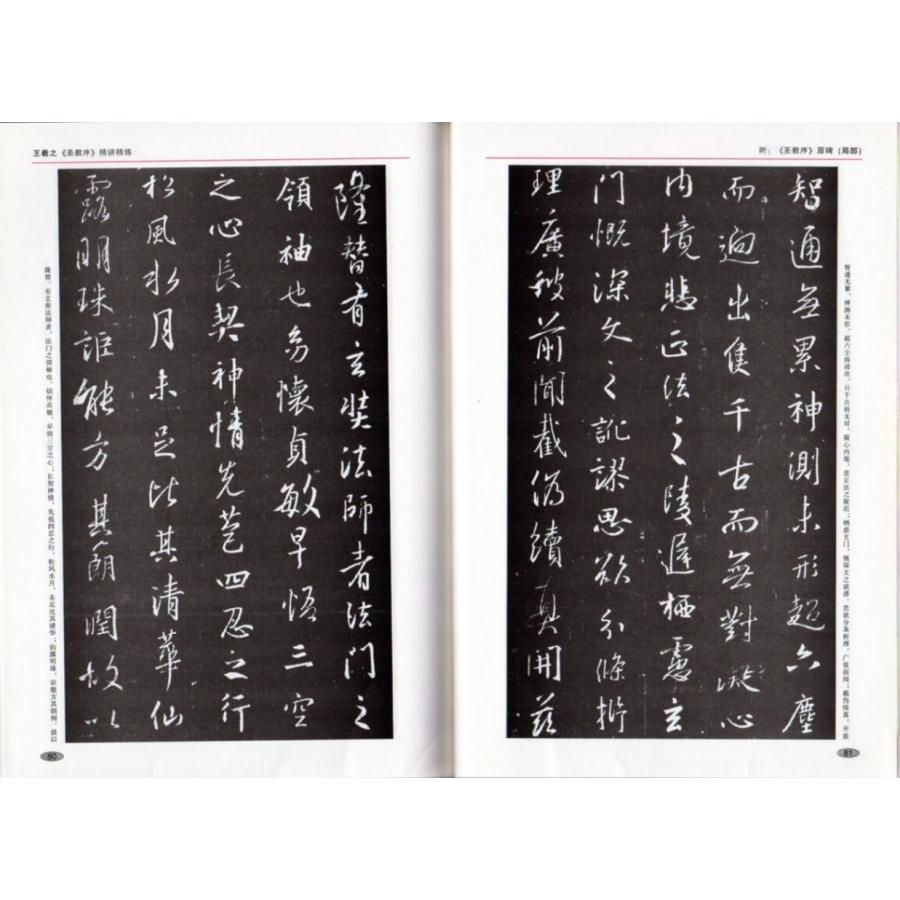 王羲之《圣教序》精讲精炼
隆替有玄奘法師者法門之
領袖也幼懷貞敏早悟三空
之心長契神情先苞四忍之行
松風水月未足比其清華仙
露明珠詎能方其朗潤故以
隆替。有玄奘法师者，法门之领袖也。幼怀贞敏，早悟三空之心；长契神情，先苞四忍之行。松风水月，未足比其清华；仙露明珠，讵能方其朗润。故以
80
附：《圣教序》原碑（局部）
智通無累神測未形超六塵
而迥出隻千古而無對凝心
內境悲正法之陵遲栖慮玄
門慨深文之訛謬思欲分條析
理廣彼前聞截偽續真開茲
智通无累，神测未形，超六尘而迥出，只千古而无对。凝心内境，悲正法之陵迟；栖虑玄门，慨深文之讹谬。思欲分条析理，广彼前闻；截伪续真，开兹
81